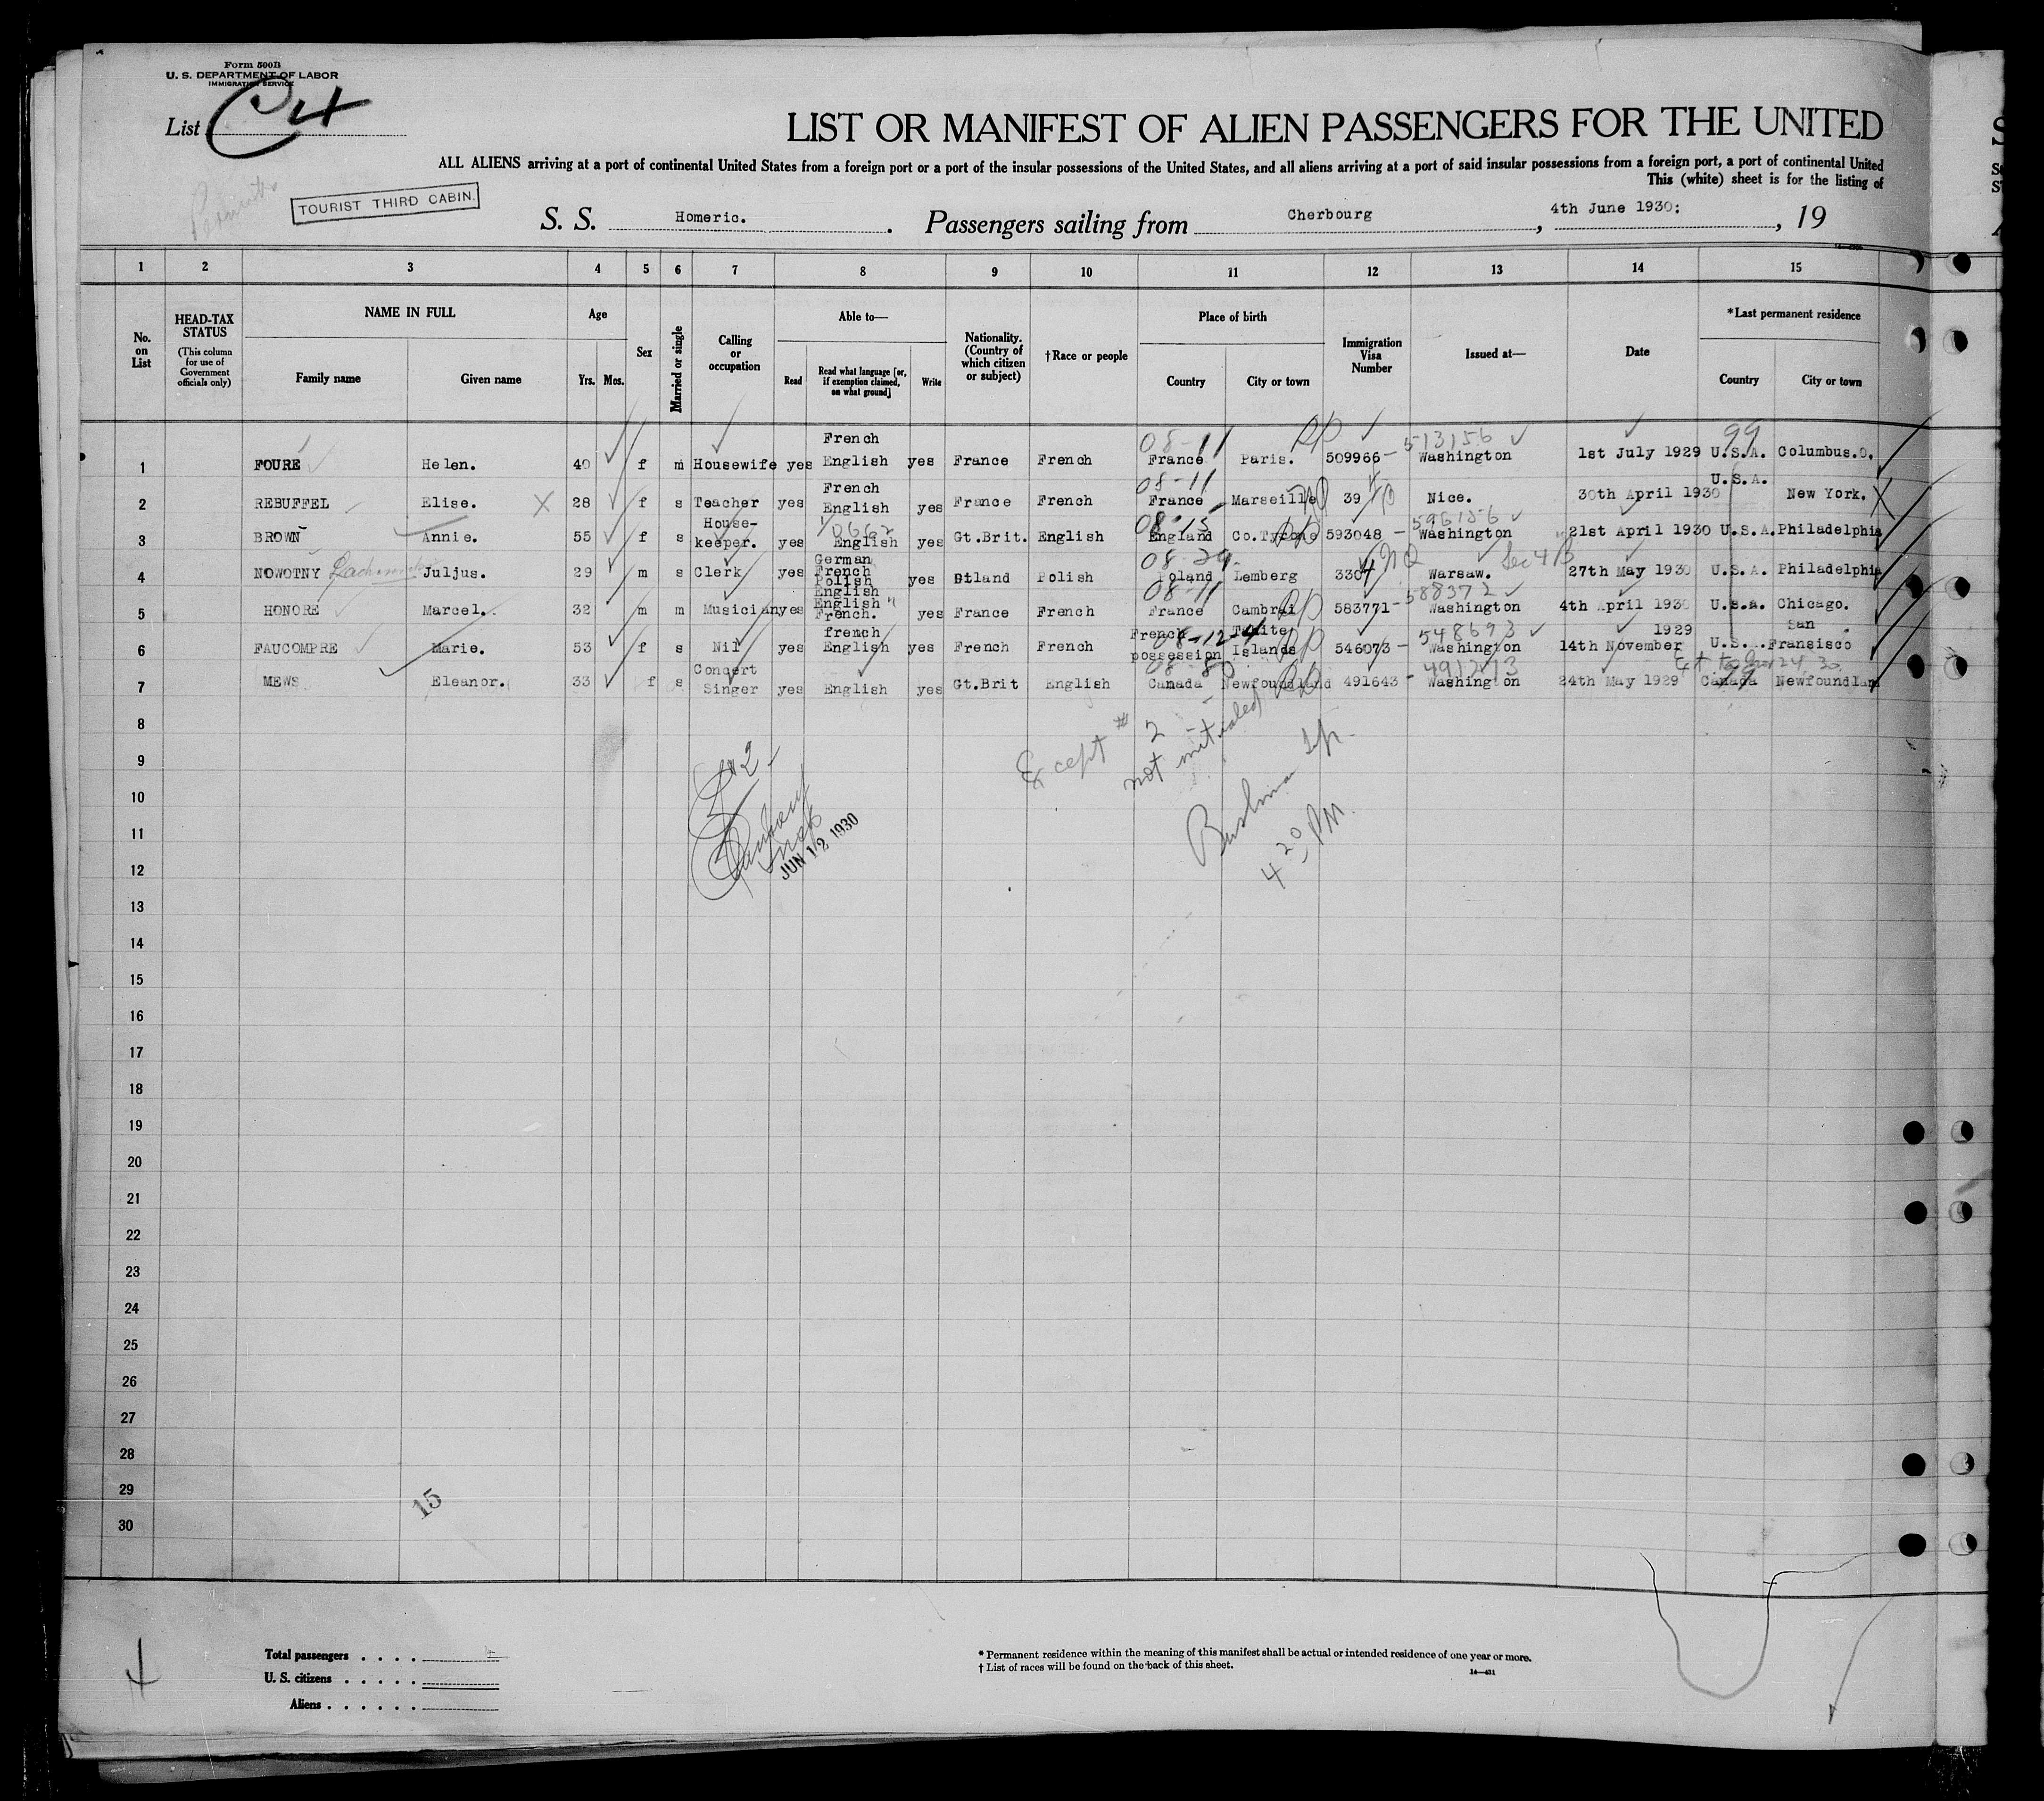 Form 500B
U. S. DEPARTMENT OF LABOR
IMMIGRATION SERVICE
List C 4
LIST OR MANIFEST OF ALIEN PASSENGERS FOR THE UNITED
ALL ALIENS arriving at a port of continental United States from a foreign port or a port of the insular possessions of the United States, and all aliens arriving at a port of said insular possessions from a foreign port, a port of continental United
This (white) sheet is for the listing of
TOURIST THIRD CABIN.
S. S. Homeric. Passengers sailing from Cherbourg, 4th June 1930:, 19
1 2 3 4 5 6 7 8 9 10 11 12 13 14 15
No. on List
HEAD-TAX STATUS (This column for use of Government officials only)
NAME IN FULL
Family name Given name
Age
Yrs. Mos.
Sex
Married or single
Calling or occupation
Able to—
Read Read what language [or, if exemption claimed, on what ground] Write
Nationality. (Country of which citizen or subject)
†Race or people
Place of birth
Country City or town
Immigration Visa Number
Issued at—
Date
*Last permanent residence
Country City or town
08-11 PP 513156 99
1 FOURE Helen. 40 f m Housewife yes French English yes France French France Paris. 509966 - Washington 1st July 1929 U.S.A. Columbus.O.
08-11
2 REBUFFEL Elise. X 28 f s Teacher yes French English yes France French France Marseille 39 Nice. 30th April 1930 U.S.A. New York. X
08-15 596156
3 BROWN Annie. 55 f s House-keeper. yes English yes Gt.Brit. English England Co.Tyrone 593048 - Washington 21st April 1930 U.S.A. Philadelphia
08-29 NQ Sec 4 B
4 NOWOTNY Juljus. 29 m s Clerk yes German French Polish English yes Polish Poland Lemberg 3304 Warsaw. 27th May 1930 U.S.A. Philadelphia
08-11 PP 588372
5 HONORE Marcel. 32 m m Musician yes English French. yes France French France Cambrai 583771 - Washington 4th April 1930 U.S.A. Chicago.
08-12-4 PP 548693
6 FAUCOMPRE Marie. 53 f s Nil yes french English yes French French French possession Islands 546073 - Washington 14th November 1929 U.S.. San Fransisco
08-80 PP 491213
7 MEWS Eleanor. 33 f s Concert Singer yes English yes Gt.Brit English Canada Newfoundland 491643 - Washington 24th May 1929 Canada Newfoundland
8
9
10
11
12
13
14
15
16
17
18
19
20
21
22
23
24
25
26
27
28
29
30
Except # 2
not initialed
4 20 PM.
#2
JUN 12 1930
15
Total passengers . . . .
U. S. citizens . . . . .
Aliens . . . . . .
* Permanent residence within the meaning of this manifest shall be actual or intended residence of one year or more.
† List of races will be found on the back of this sheet.
14—431